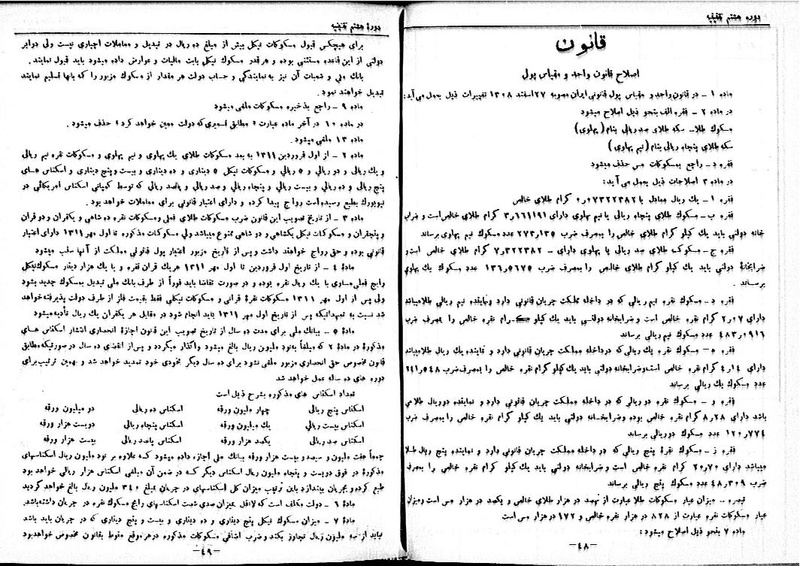 دوره هشتم تقنینیه
قانون
اصلاح قانون واحد و مقیاس پول
ماده ۱ – در قانون واحد و مقیاس پول قانونی ایران مصوبه ۲۷ اسفند ۱۳۰۸ تغییرات ذیل بعمل می‌آید:
در ماده ۲ – فقره الف بنحو ذیل اصلاح میشود
مسکوك طلا – سکه طلای صد ریالی بنام (پهلوی)
سکه طلای پنجاه ریالی بنام (نیم پهلوی)
فقره د – راجع بمسکوکات مس حذف میشود
در ماده ۳ اصلاحات ذیل بعمل می آید:
فقره ۱ – یك ریال معادل با ۰/۰۷۳۲۲۳۸۲ گرام طلای خالص
فقره ب – مسکوك طلای پنجاه ریالی یا نیم پهلوی دارای ۳/۶۶۱۱۹۱ گرام طلای خالص است و ضراب
خانه دولتی باید یك کیلو گرام طلای خالص را بمصرف ضرب ۲۷۳/۱۳۵ عدد مسکوك نیم پهلوی برساند
فقره ج – مسکوك طلای صد ریالی یا پهلوی دارای ۷/۳۲۲۳۸۲ گرام طلای خالص است و
ضرابخانهٔ دولتی باید یك کیلو گرام طلای خالص را بمصرف ضرب ۱۳۶/۵۶۷۵ عدد مسکوك یك پهلوی
برساند.
فقره د – مسکوك نقره نیم ریالی که در داخله مملکت جریان قانونی دارد و نماینده نیم ریال طلا میباشد
دارای ۲/۰۷ گرام نقره خالص است و ضرابخانه دولتی باید یك کیلو گرام نقره خالص را بمصرف ضرب
۴۸۳/۰۹۱۶ عدد مسکوك نیم ریالی برساند
فقره ه – مسکوك نقره یك ریالی که در داخله مملکت جریان قانونی دارد و نماینده یك ریال طلا میباشد
دارای ۴/۱۴ گرام نقره خالص است و ضرابخانه دولتی باید یك کیلو گرام نقره خالص را بمصرف ضرب ۲۴۱/۵۴۸
عدد مسکوك یك ریالی برساند
فقره و – مسکوك نقره دو ریالی که در داخله مملکت جریان قانونی دارد و نماینده دو ریال طلا می
باشد دارای ۸/۲۸ گرام نقره خالص بوده و ضرابخانه دولتی باید یك کیلو گرام نقره خالص را بمصرف ضرب
۱۲۰/۷۷۴ عدد مسکوك دو ریالی برساند
فقره ز – مسکوك نقره پنج ریالی که در داخله مملکت جریان قانونی دارد و نماینده پنج ریال طلا
میباشد دارای ۲۰/۷۰ گرام نقره خالص است و ضرابخانه دولتی باید یك کیلو گرام نقره خالص را بمصرف
ضرب ۴۸/۳۰۹ عدد مسکوك پنج ریالی برساند
تبصره – میزان عیار مسکوکات طلا عبارت از نهصد در هزار طلای خالص و یکصد در هزار مس است و میزان
عیار مسکوکات نقره عبارت از ۸۲۸ در هزار نقره خالص و ۱۷۲ در هزار مس است
ماده ۷ بنحو ذیل اصلاح میشود:
–۴۸–
دورهٔ هشتم تقنینیه
برای هیچکس قبول مسکوکات نیکل بیش از مبلغ ده ریال در تبدیل و معاملات اجباری نیست ولی دوایر
دولتی از این قاعده مستثنی بوده و هر قدر مسکوك نیکل بابت مالیات و عوارض داده میشود باید قبول نمایند.
بانك ملی و شعبات آن نیز به نمایندگی و حساب دولت هر مقدار از مسکوك مزبور را که بآنها تسلیم نمایند
تبدیل خواهند نمود.
ماده ۹ – راجع بذخیره مسکوکات ملغی میشود
در ماده ۱۰ در آخر ماده عبارت (مطابق تسعیری که دولت معین خواهد کرد) حذف میشود.
ماده ۱۳ ملغی میشود.
ماده ۲ – از اول فروردین ۱۳۱۱ به بعد مسکوکات طلای یك پهلوی و نیم پهلوی و مسکوکات نقره نیم ریالی
و یك ریالی و دو ریالی و ۵ ریالی و مسکوکات نیکل ۵ دیناری و ده دیناری و بیست و پنج دیناری و اسکناس های
پنج ریالی و ده ریالی و بیست ریالی و پنجاه ریالی و صد ریالی و پانصد ریالی که توسط کمپانی اسکناس امریکائی در
نیویورك بطبع رسیده است رواج پیدا کرده و دارای اعتبار قانونی برای معاملات خواهد بود.
ماده ۳ – از تاریخ تصویب این قانون ضرب مسکوکات طلای فعلی و مسکوکات نقره ده شاهی و یکقران و دو قران
و پنجقران و مسکوکات نیکل یکشاهی و دو شاهی ممنوع میباشد ولی مسکوکات مذکوره تا اول مهر ۱۳۱۱ دارای اعتبار
قانونی بوده و حق رواج خواهند داشت و پس از تاریخ مزبور اعتبار پول قانونی مملکت از آنها سلب میشود
مادهٔ ۴ – از تاریخ اول فروردین تا اول مهر ۱۳۱۱ هر یك قران نقره و یا یك هزار دینار مسکوك نیکل
رایج فعلی مساوی با یك ریال نقره بوده و در صورت تقاضا باید فوراً از طرف بانك ملی تبدیل بمسکوك جدید بشود
ولی پس از اول مهر ۱۳۱۱ مسکوکات نقرهٔ قرانی و مسکوکات نیکلی فقط بقیمت فلز از طرف دولت پذیرفته خواهد
شد نسبت به تعهداتیکه پس از تاریخ اول مهر ۱۳۱۱ باید انجام شود در مقابل هر یکقران یك ریال تأدیه میشود
مادهٔ ۵ – ببانك ملی برای مدت ده سال از تاریخ تصویب این قانون اجازهٔ انحصاری انتشار اسکناس های
مذکورهٔ در مادهٔ ۲ که مبلغاً به نود ملیون ریال بالغ میشود واگذار میگردد و پس از انقضای ده سال در صورتیکه مطابق
قانون مخصوص حق انحصاری مزبور ملغی نشود برای ده سال دیگر بخودی خود تمدید خواهد شد و بهمین ترتیب برای
دوره های ده ساله عمل خواهد شد
تعداد اسکناس های مذکوره بشرح ذیل است
اسکناس پنج ریالی چهار ملیون ورقه اسکناس ده ریالی دو میلیون ورقه
اسکناس بیست ریالی یك ملیون ورقه اسکناس پنجاه ریالی دویست هزار ورقه
اسکناس صد ریالی یکصد هزار ورقه اسکناس پانصد ریالی شصت هزار ورقه
جمعاً هفت ملیون و سیصد و بیست هزار ورقه ببانك ملی اجازه داده میشود که علاوه بر نود ملیون ریال اسکناسهای
مذکورهٔ در فوق دویست و پنجاه ملیون ریال اسکناس دیگر که در ضمن آن مبلغی اسکناس هزار ریالی خواهد بود
طبع کرده و بجریان بیندازد باین ترتیب میزان کل اسکناسهای در جریان بمبلغ ۳۴۰ ملیون ریال بالغ خواهد گردید
مادهٔ ۶ – دولت مکلف است که لااقل بمیزان صدی شصت اسکناسهای رایج مسکوك نقره در جریان داشته باشد.
مادهٔ ۷ – میزان مسکوك نیکل پنج دیناری و ده دیناری و بیست و پنج دیناری که در جریان باید باشد
نباید از سه ملیون ریال تجاوز بکند و ضرب اضافی مسکوکات مذکوره در هر موقع منوط بقانون مخصوص خواهد بود
–۴۹–